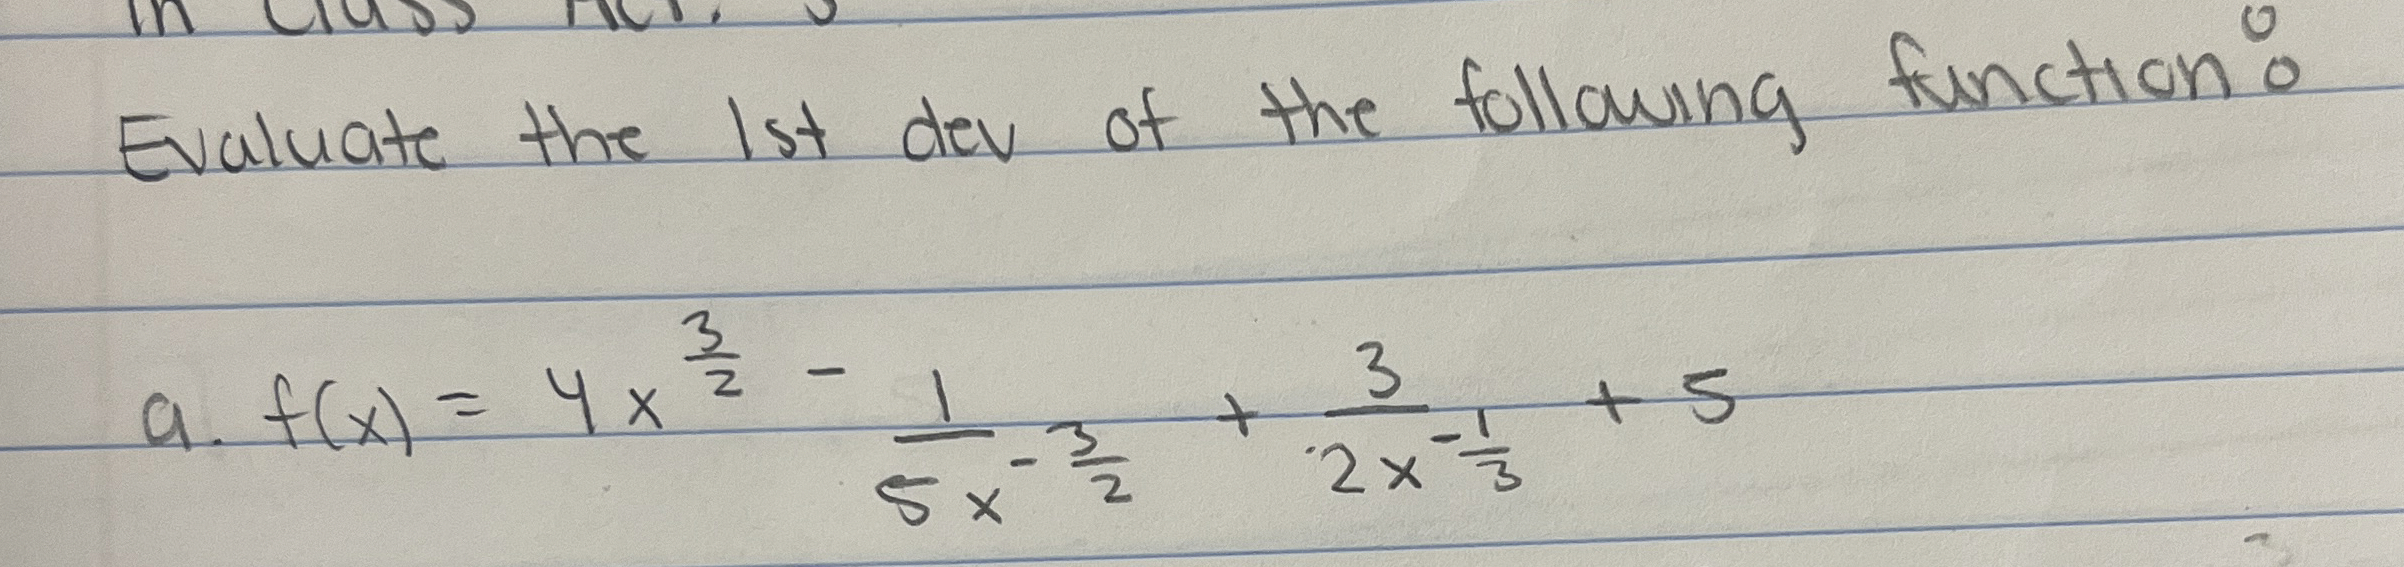 in Class Act. 3
Evaluate the 1st dev of the following function:
a. f(x) = 4x^{\frac{3}{2}} - \frac{1}{5x^{-\frac{3}{2}}} + \frac{3}{2x^{-\frac{1}{3}}} + 5